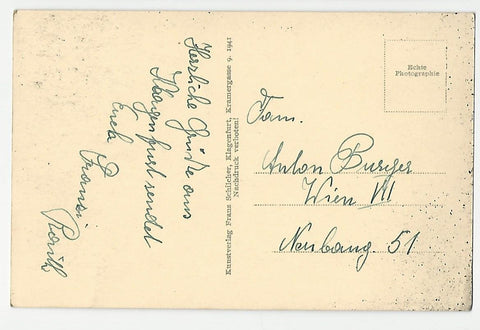 Herzliche Grüße aus
Klagenfurt sendet
Euch Fransi
Kunstverlag Franz Schilcher, Klagenfurt, Kramergasse 9. 1941
Nachdruck verboten!
Echte
Photographie
Fam.
Anton Burger
Wien VII
Neubaug. 51